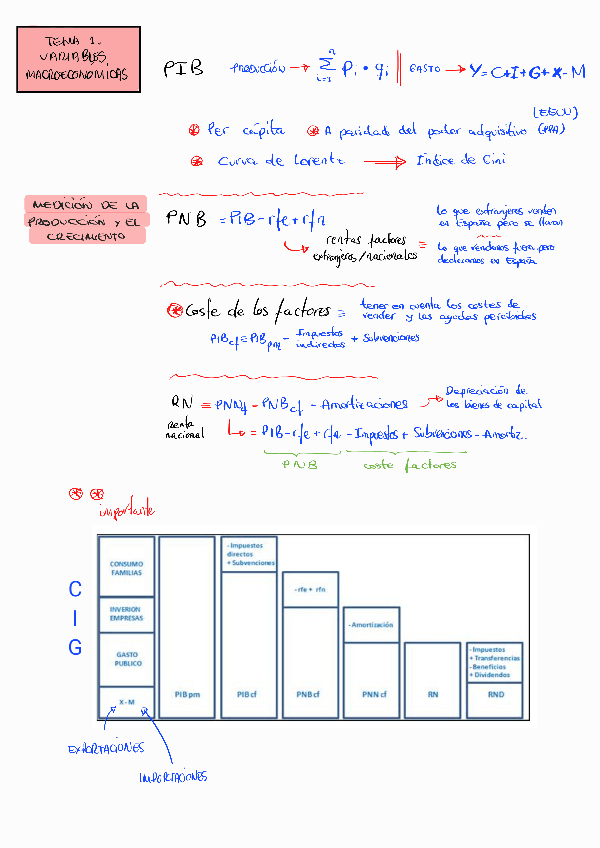 TEMA 1.
VARIABLES
MACROECONOMICAS
PIB PRODUCCIÓN → Σ n i=1 Pi • qi GASTO → Y = C+I+G+X-M
* Per cápita * A paridad del poder adquisitivo (PPA)
* Curva de Lorentz → Índice de Gini
MEDICIÓN DE LA
PRODUCCIÓN Y EL
CRECIMIENTO
PNB = PIB - rfe + rfn
rentas factores
extranjeros/nacionales =
lo que extranjeros venden
en España pero se llevan
lo que vendemos fuera pero
declaramos en España
* Coste de los factores = tener en cuenta los costes de
vender y las ayudas percibidas
PIBcf = PIBpm - Impuestos indirectos + Subvenciones
RN = PNNcf = PNBcf - Amortizaciones → Depreciación de
los bienes de capital
renta
nacional
= PIB - rfe + rfn - Impuestos + Subvenciones - Amortiz..
PNB coste factores
* *
importante
C
I
G
CONSUMO
FAMILIAS
INVERION
EMPRESAS
GASTO
PUBLICO
X - M
PIB pm
- Impuestos
directos
+ Subvenciones
PIB cf
- rfe + rfn
PNB cf
- Amortización
PNN cf
RN
- Impuestos
+ Transferencias
- Beneficios
+ Dividendos
RND
EXPORTACIONES
IMPORTACIONES